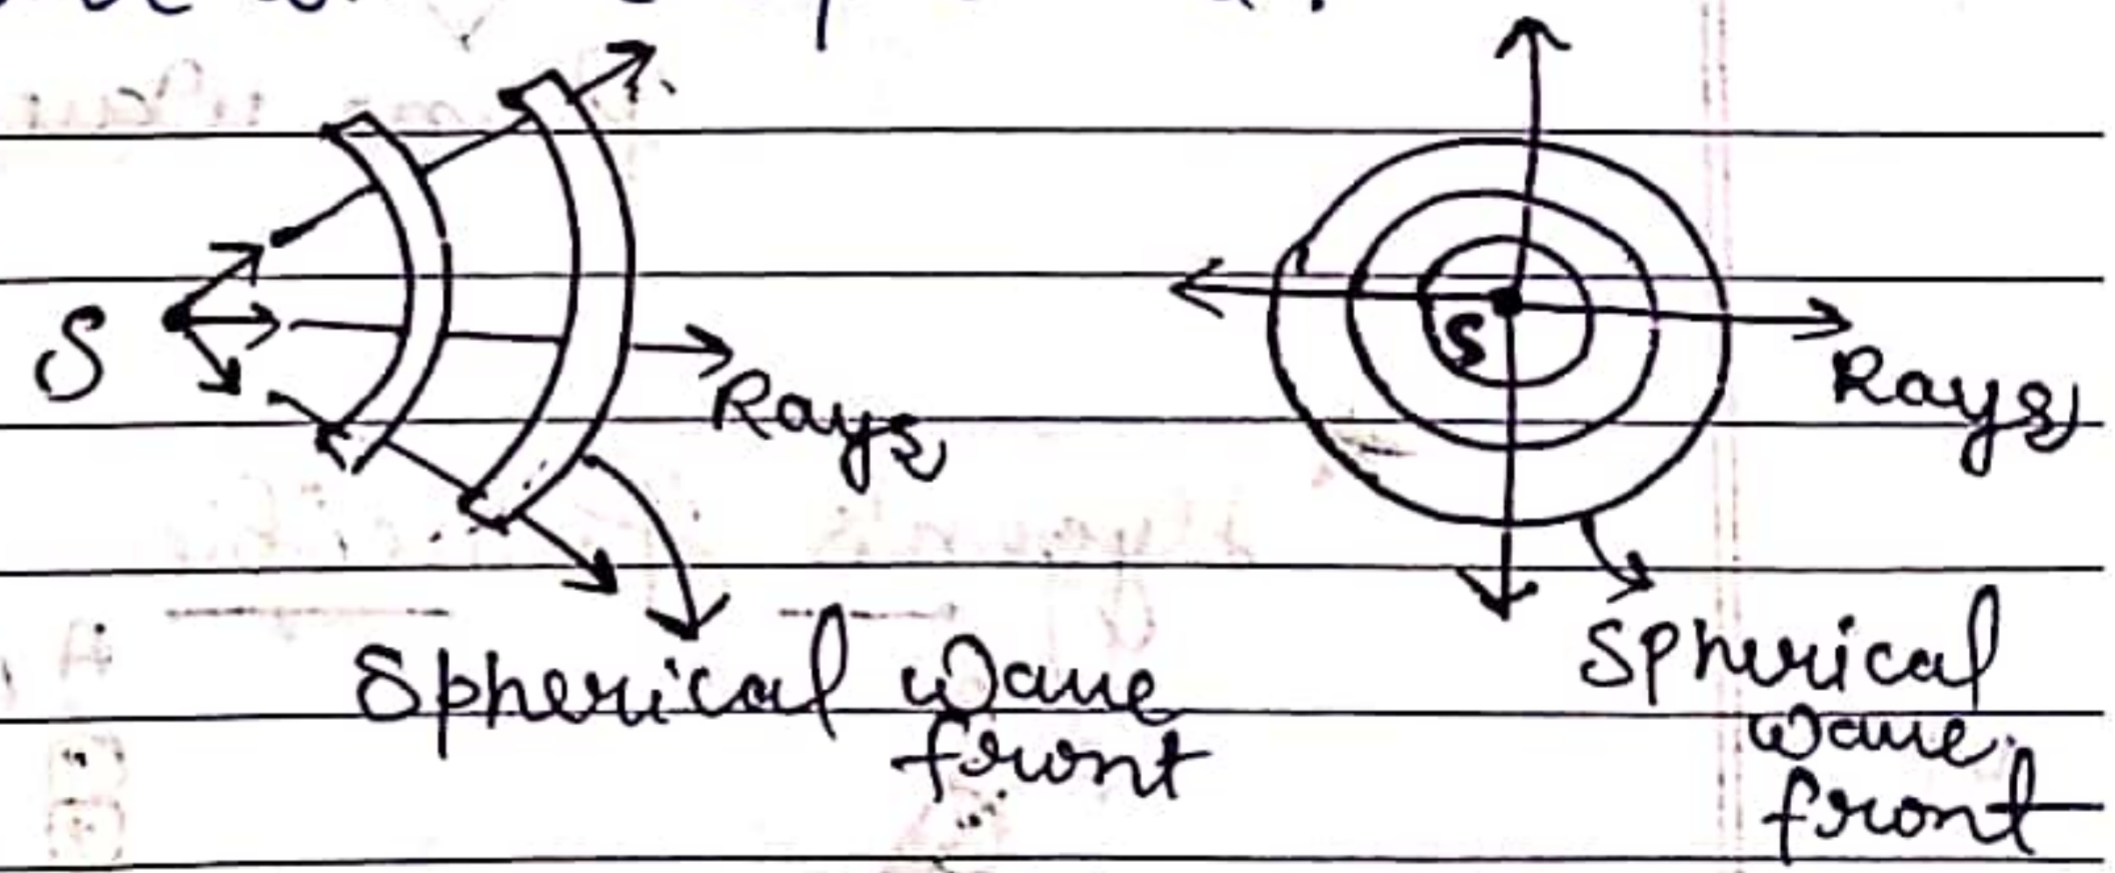 S
Rays
Spherical wave
front
S
Rays
Spherical
wave
front